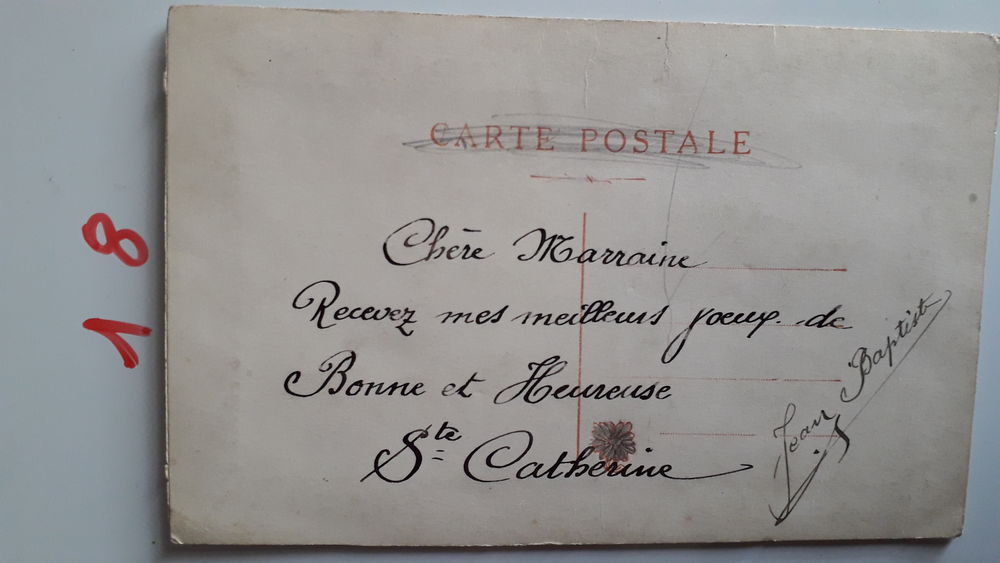 CARTE POSTALE
Chère Marraine
Recevez mes meilleurs vœux de
Bonne et Heureuse
Ste Catherine
Jean Baptiste
18